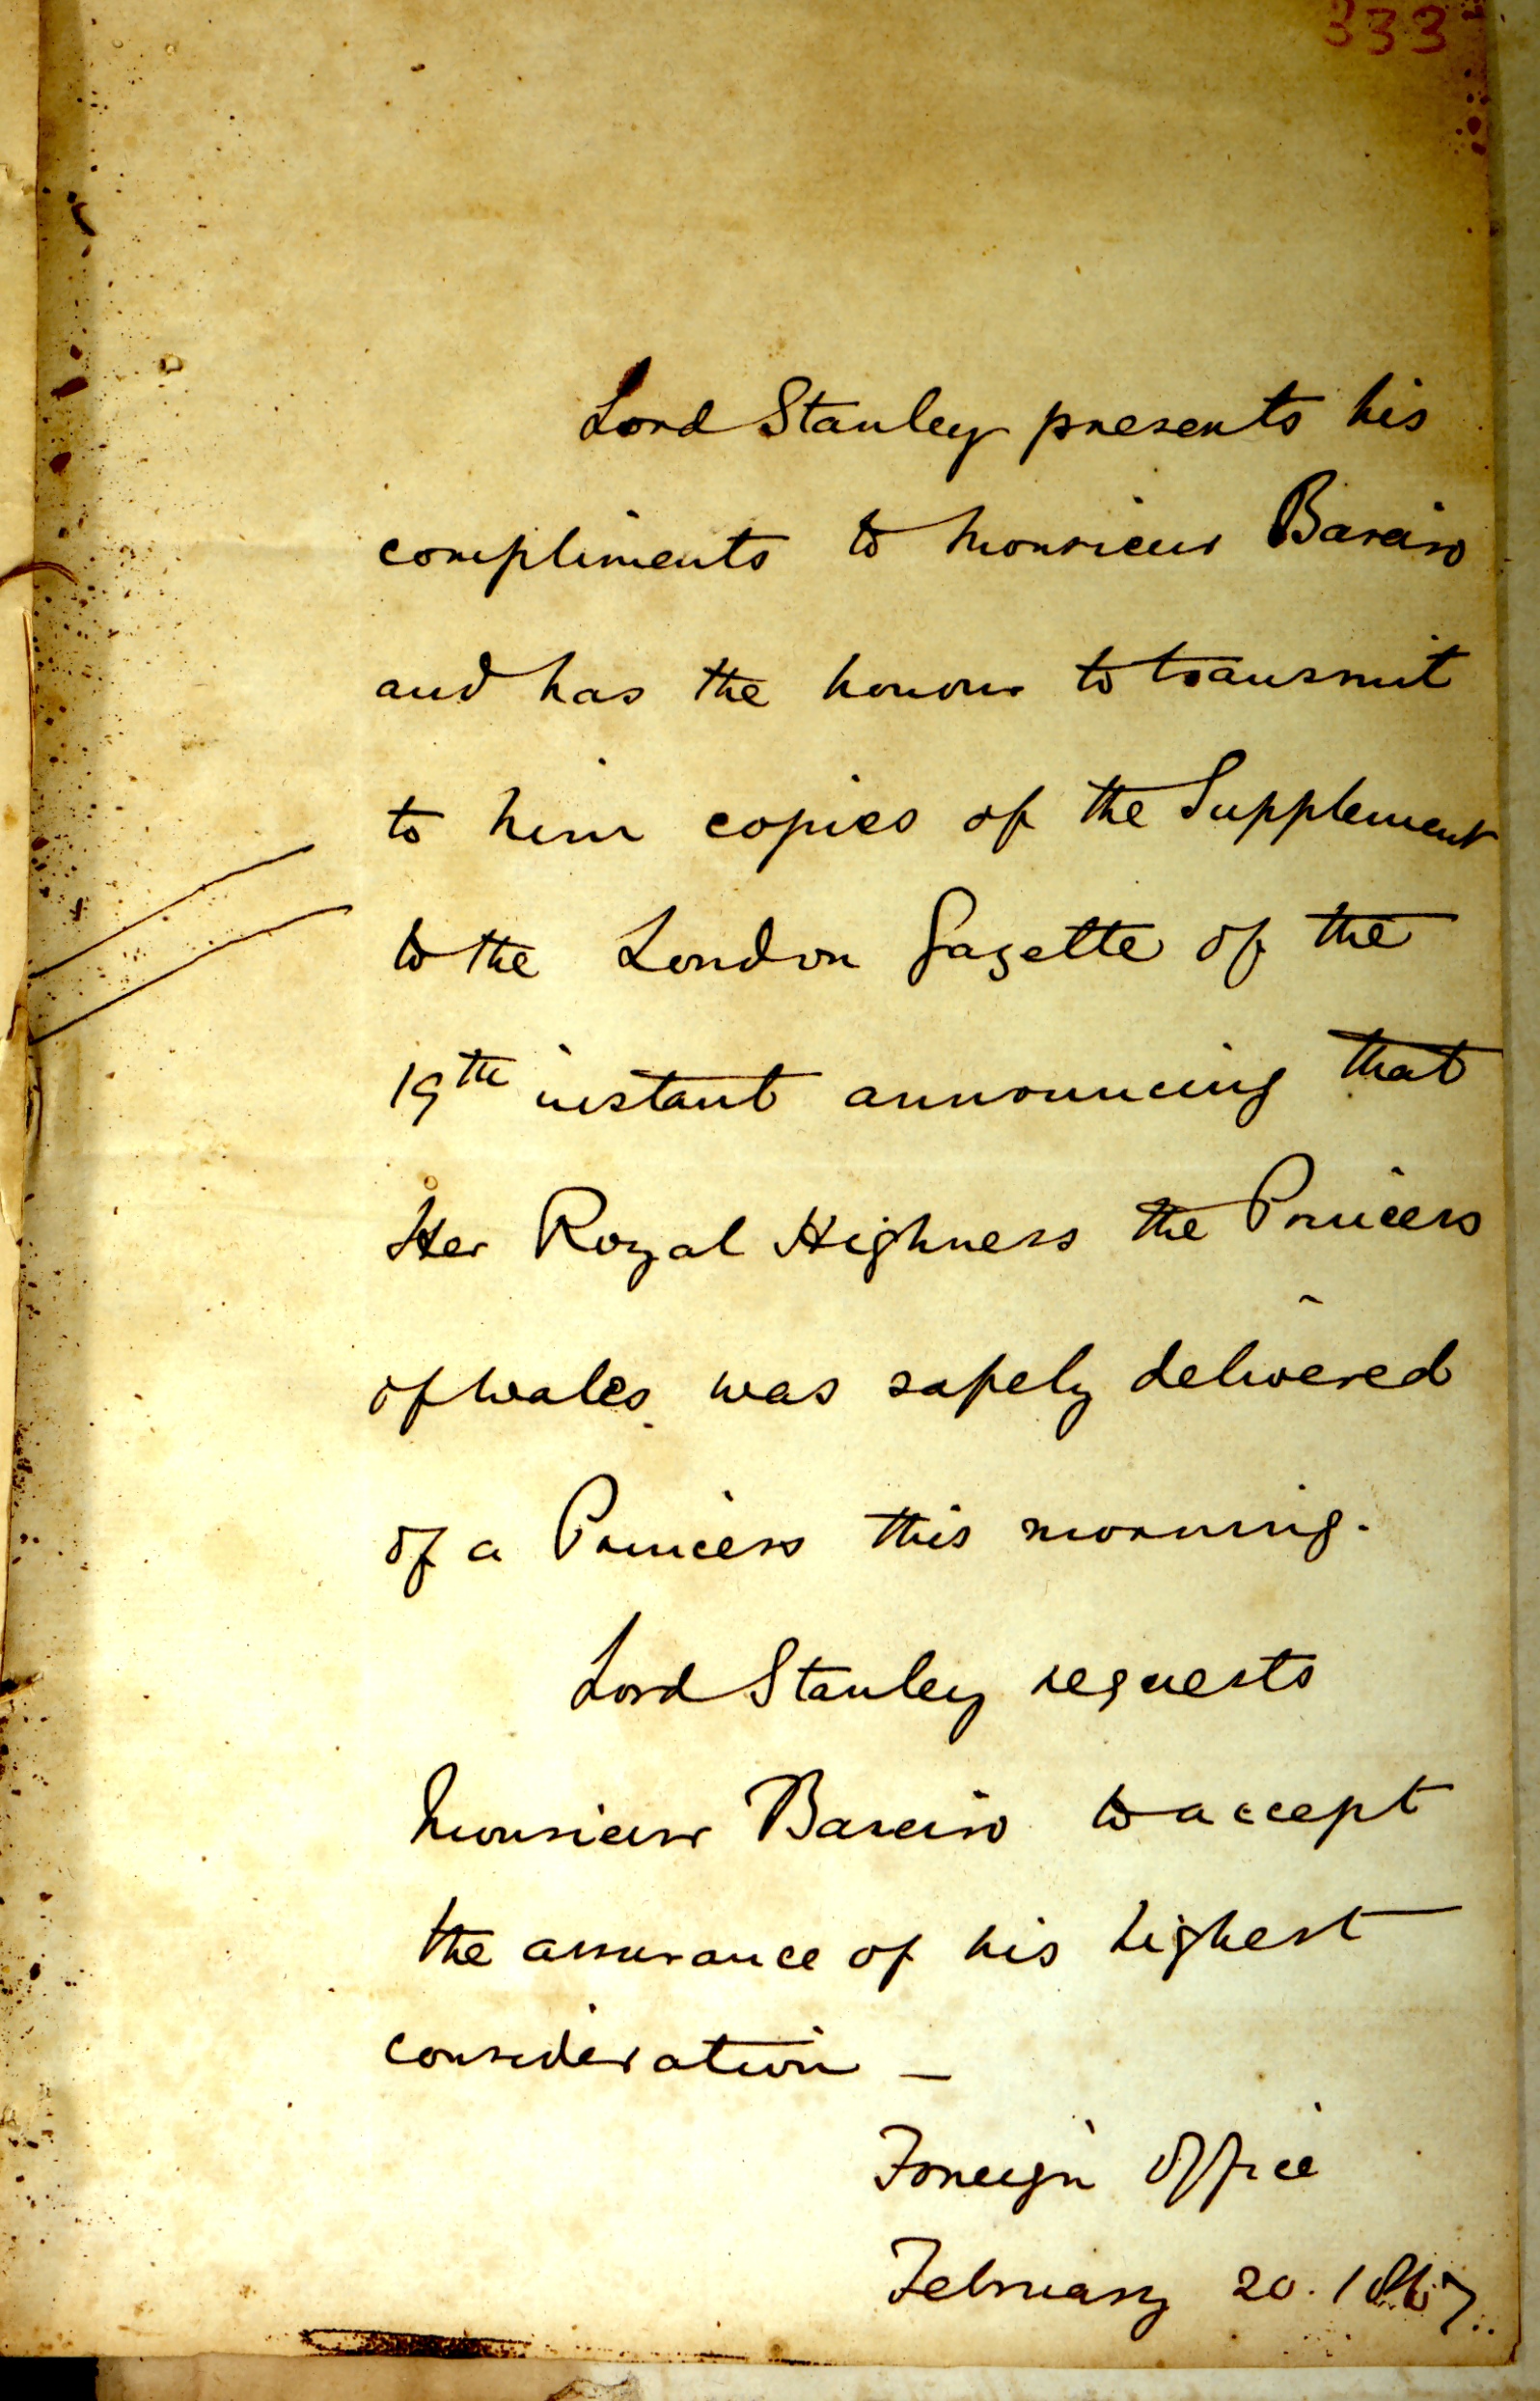 333
Lord Stanley presents his
compliments to Monsieur Bareiro
and has the honour to transmit
to him copies of the Supplement
to the London Gazette of the
19th instant announcing that
Her Royal Highness the Princess
of Wales was safely delivered
of a Princess this morning.
Lord Stanley requests
Monsieur Bareiro to accept
the assurance of his highest
consideration —
Foreign Office
February 20. 1867.